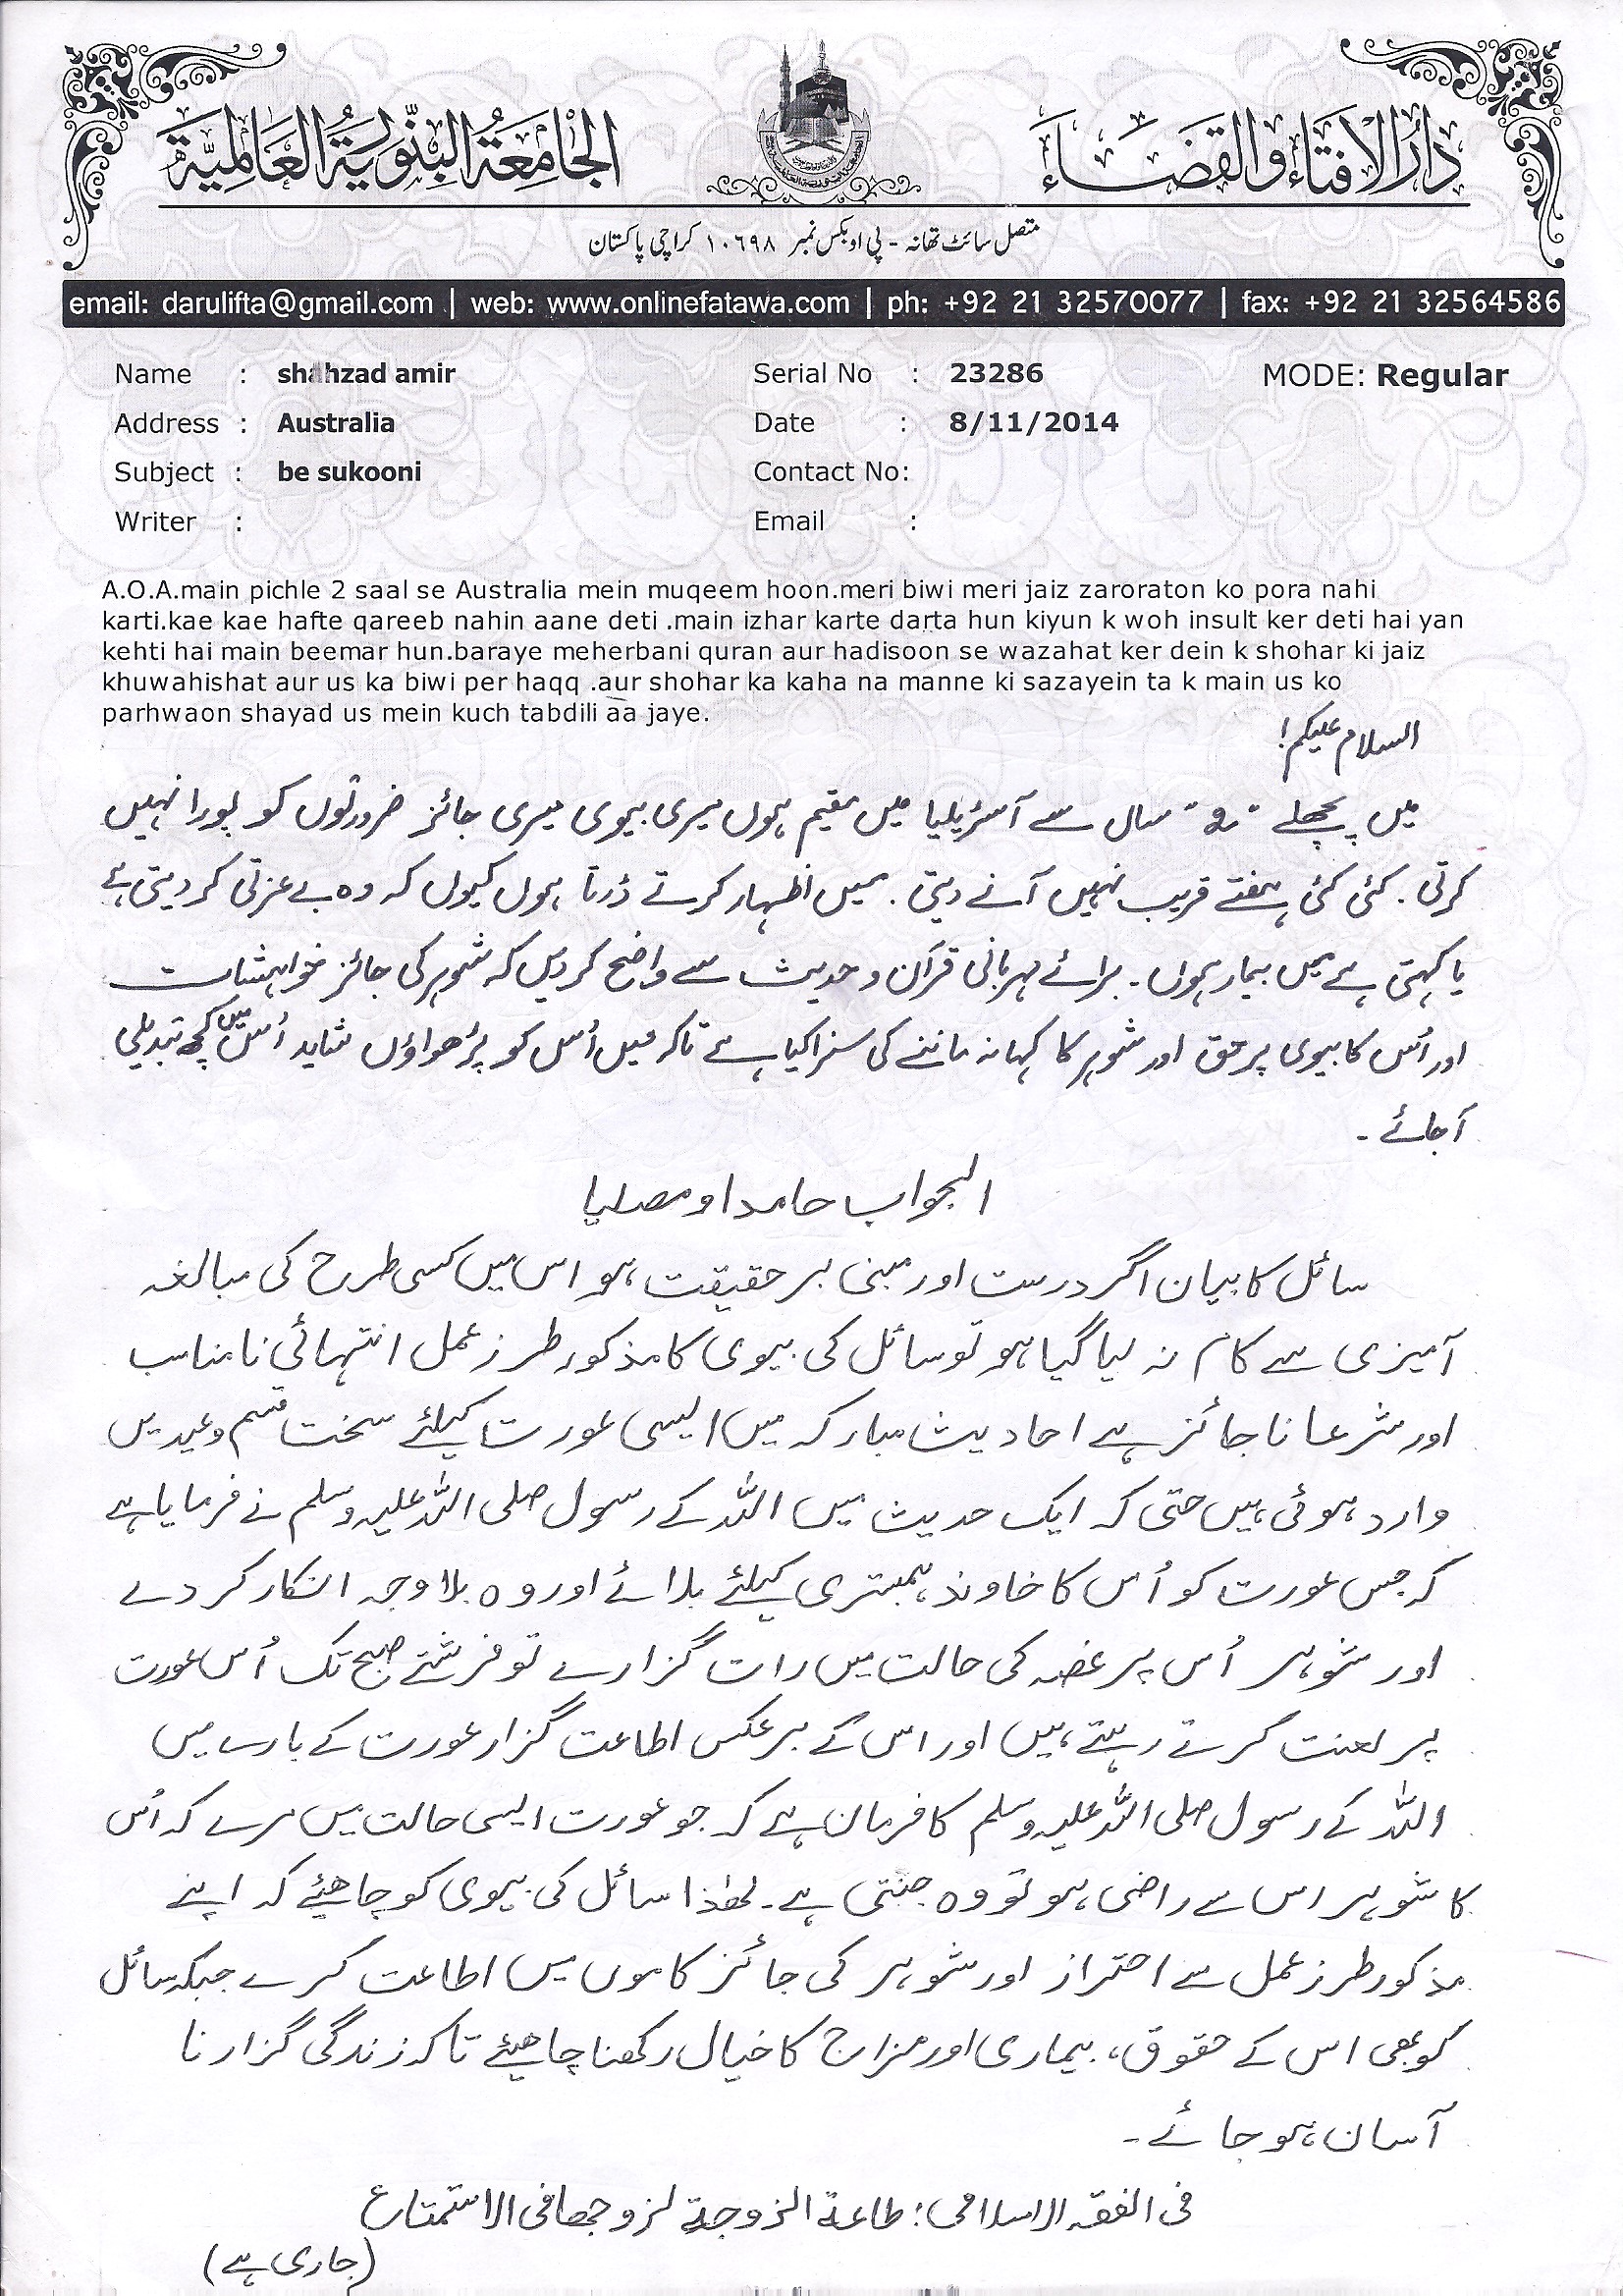 دارالافتاء والقضاء
الجامعة البنورية العالمية
متصل سائٹ تھانہ - پی او بکس نمبر ۱۰۶۹۸ کراچی پاکستان
email: darulifta@gmail.com | web: www.onlinefatawa.com | ph: +92 21 32570077 | fax: +92 21 32564586
Name : shahzad amir Serial No : 23286 MODE: Regular
Address : Australia Date : 8/11/2014
Subject : be sukooni Contact No:
Writer : Email :
A.O.A.main pichle 2 saal se Australia mein muqeem hoon.meri biwi meri jaiz zaroraton ko pora nahi
karti.kae kae hafte qareeb nahin aane deti .main izhar karte darta hun kiyun k woh insult ker deti hai yan
kehti hai main beemar hun.baraye meherbani quran aur hadisoon se wazahat ker dein k shohar ki jaiz
khuwahishat aur us ka biwi per haqq .aur shohar ka kaha na manne ki sazayein ta k main us ko
parhwaon shayad us mein kuch tabdili aa jaye.
السلام علیکم!
میں پچھلے "دو" سال سے آسٹریلیا میں مقیم ہوں میری بیوی میری جائز ضرورتوں کو پورا نہیں
کرتی. کئی کئی ہفتے قریب نہیں آنے دیتی. میں اظہار کرتے ڈرتا ہوں کیوں کہ وہ بے عزتی کر دیتی ہے
یا کہتی ہے میں بیمار ہوں۔ برائے مہربانی قرآن و حدیث سے واضح کر دیں کہ شوہر کی جائز خواہشات
اور اُس کا بیوی پر حق اور شوہر کا کہا نہ ماننے کی سزا کیا ہے تاکہ میں اُس کو پڑھواؤں شاید اُس میں کچھ تبدیلی
آجائے۔
الجواب حامدا ومصلیا
سائل کا بیان اگر درست اور مبنی بر حقیقت ہو اس میں کسی طرح کی مبالغہ
آمیزی سے کام نہ لیا گیا ہو تو سائل کی بیوی کا مذکور طرز عمل انتہائی نامناسب
اور شرعا ناجائز ہے احادیث مبارکہ میں ایسی عورت کیلئے سخت قسم وعیدیں
وارد ہوئی ہیں حتی کہ ایک حدیث میں اللہ کے رسول صلی اللہ علیہ وسلم نے فرمایا ہے
کہ جس عورت کو اُس کا خاوند ہمبستری کیلئے بلائے اور وہ بلا وجہ انکار کر دے
اور شوہر اُس پر غصہ کی حالت میں رات گزارے تو فرشتے صبح تک اُس عورت
پر لعنت کرتے رہتے ہیں اور اس کے برعکس اطاعت گزار عورت کے بارے میں
اللہ کے رسول صلی اللہ علیہ وسلم کا فرمان ہے کہ جو عورت ایسی حالت میں مرے کہ اُس
کا شوہر اس سے راضی ہو تو وہ جنتی ہے۔ لھٰذا سائل کی بیوی کو چاھئیے کہ اپنے
مذکور طرز عمل سے احتراز اور شوہر کی جائز کاموں میں اطاعت کرے جبکہ سائل
کو بھی اس کے حقوق، بیماری اور مزاج کا خیال رکھنا چاھئیے تاکہ زندگی گزارنا
آسان ہو جائے۔
فی الفقہ الاسلامی: طاعة الزوجة لزوجھا فی الاستمتاع
(جاری ہے)